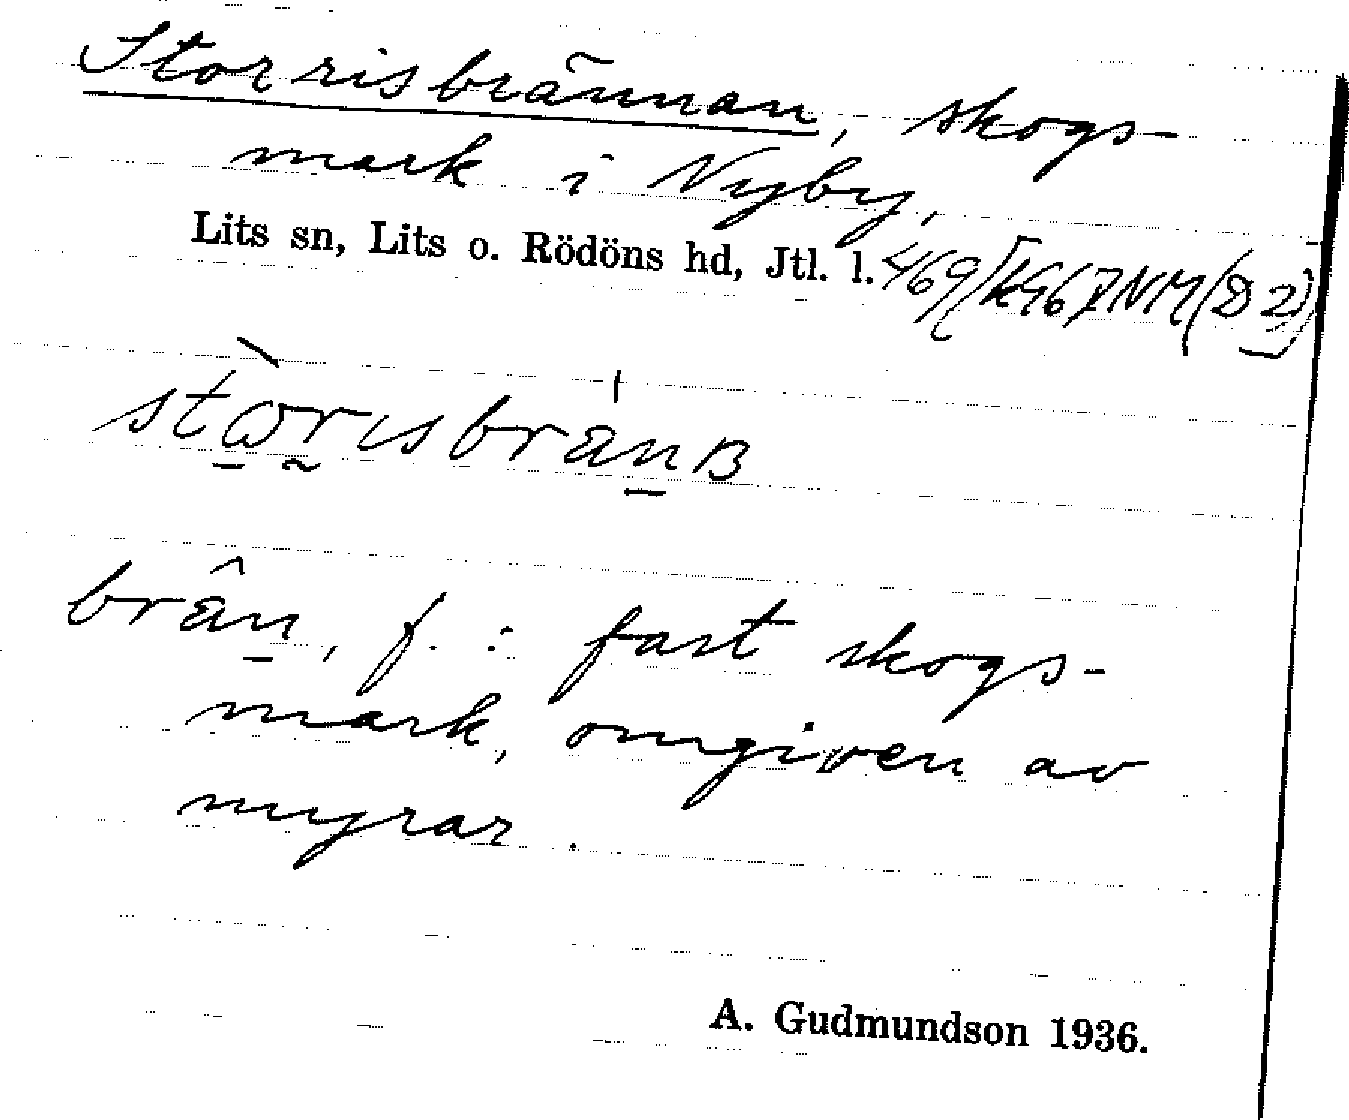 Storrisbrännan, skogs-
mark i Nyby,
Lits sn, Lits o. Rödöns hd, Jtl. l. 469/
storisbränʙ
brân, f. : fast skogs-
mark, omgiven av
myrar.
A. Gudmundson 1936.